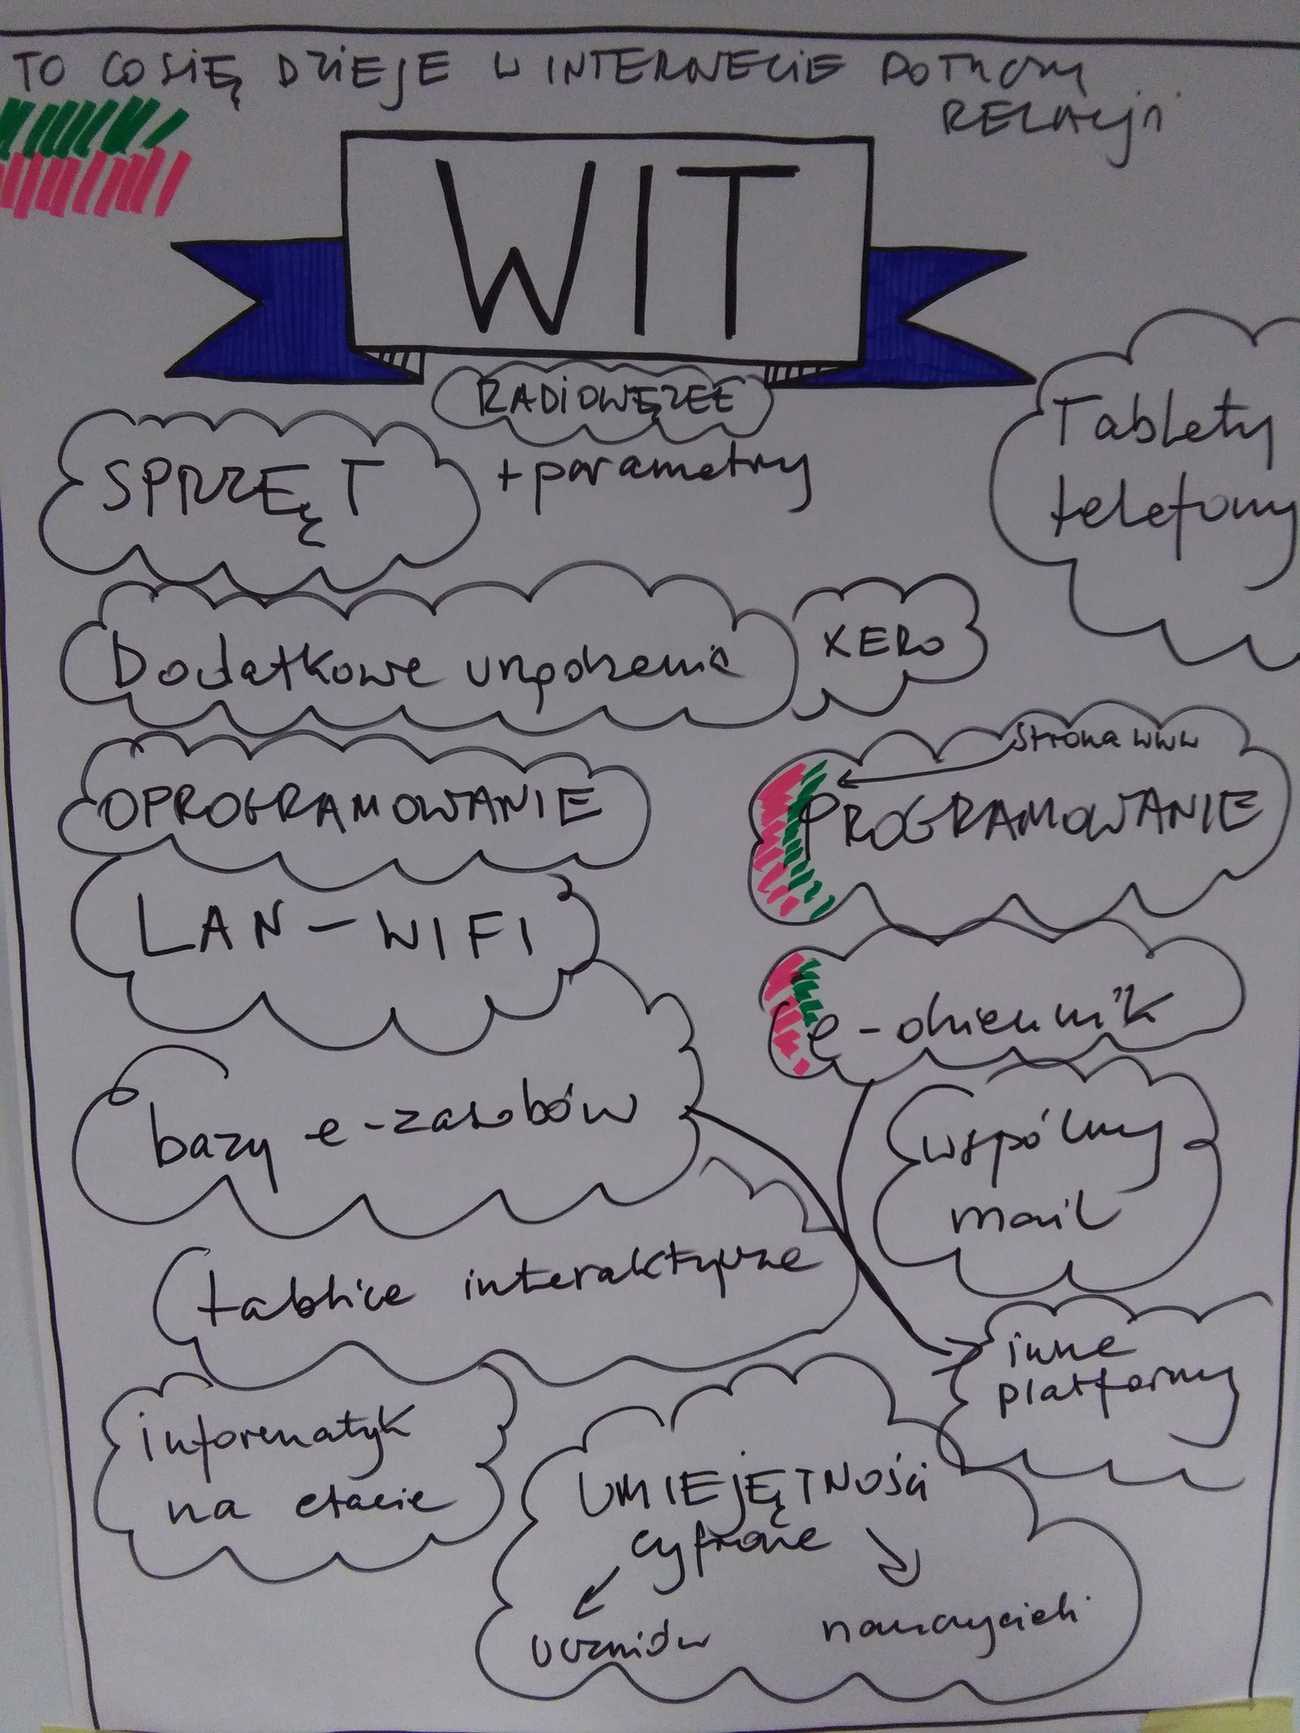 TO CO SIĘ DZIEJE W INTERNECIE DOTYCZY
RELACJI
WIT
RADIOWĘZEŁ
SPRZĘT
+ parametry
Tablety
telefony
Dodatkowe urządzenia
XERO
Strona www
OPROGRAMOWANIE
PROGRAMOWANIE
LAN - WIFI
e-dziennik
bazy e-zasobów
wspólny
mail
tablice interaktywne
inne
platformy
informatyk
na etacie
UMIEJĘTNOŚCI
cyfrowe
uczniów
nauczycieli